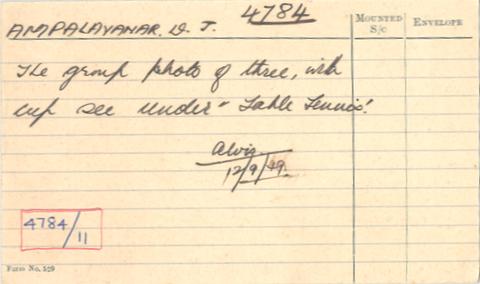 AMPALAVANAR, D. J. 4784
MOUNTED S/c
ENVELOPE
The group photo of three, with
cup see under "Table Tennis".
Alvis
12/9/49.
4784/11
FORM NO. 529